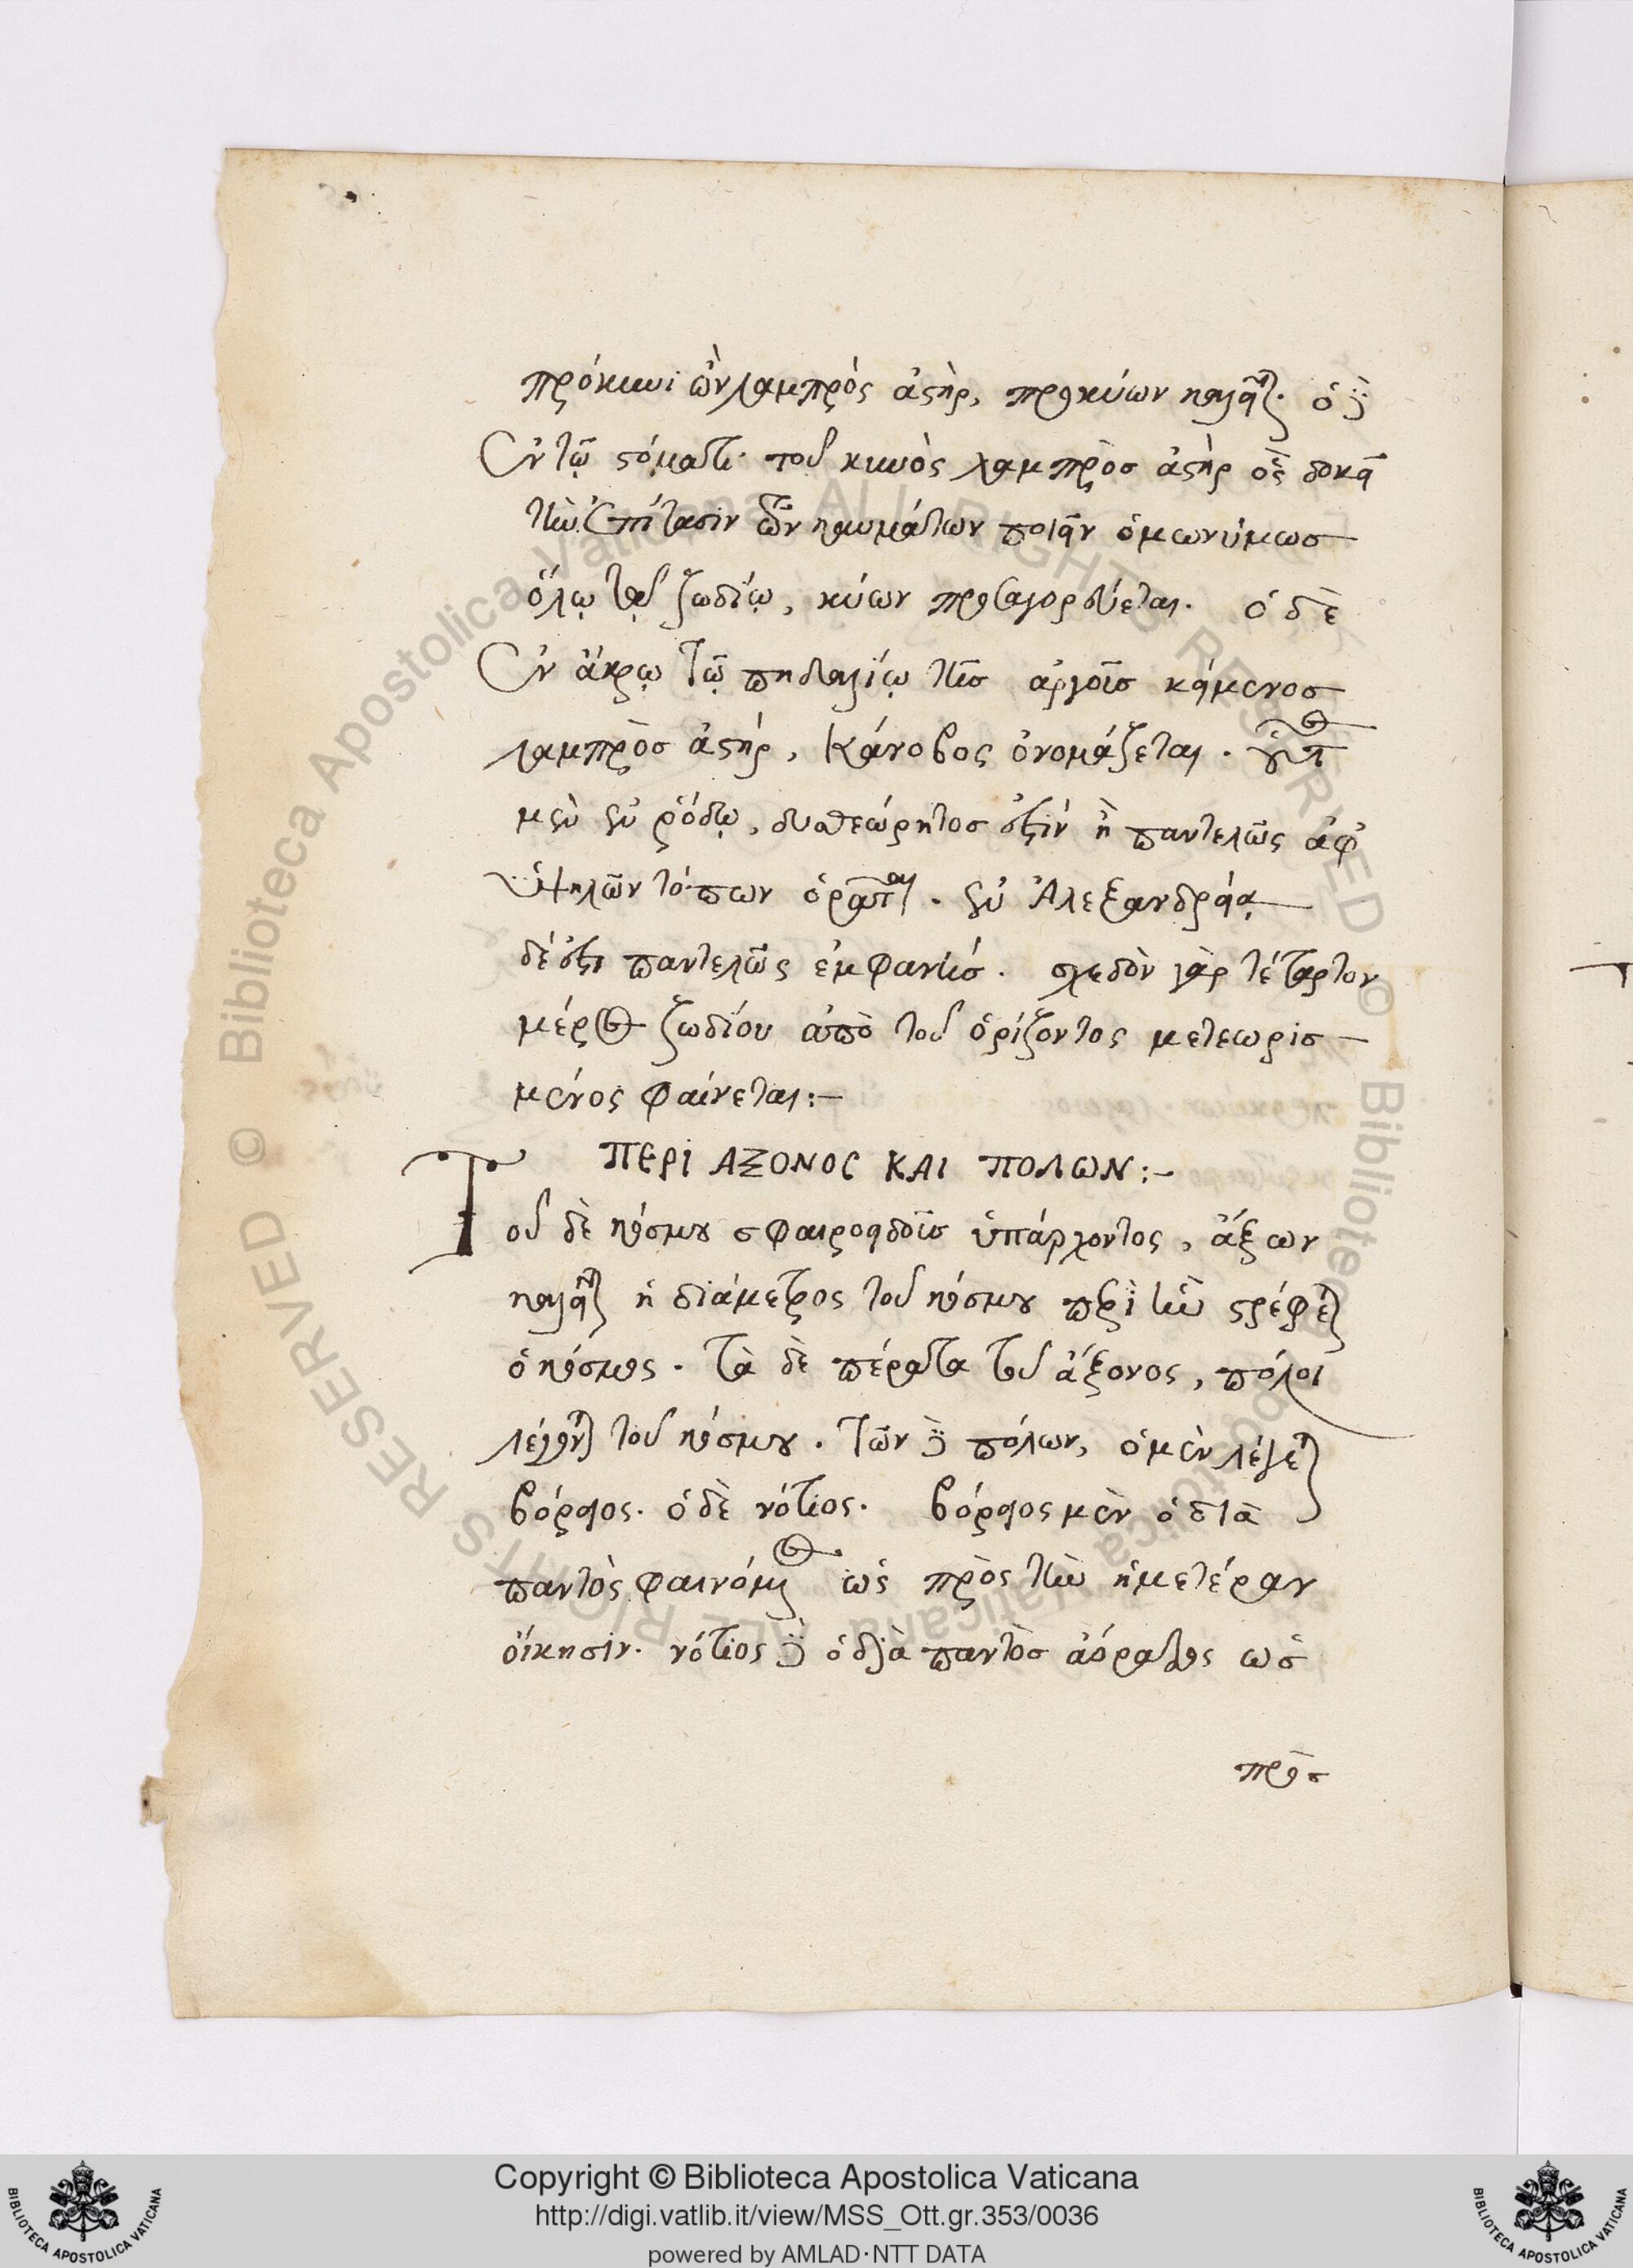 πρόκυνι ὢν λαμπρὸς ἀστὴρ, προκύων καλεῖται. ὁ δὲ
ἐν τῷ στόματι τοῦ κυνὸς λαμπρὸσ ἀστὴρ ὃς δοκεῖ
τὴν ἐπίτασιν τῶν καυμάτων ποιεῖν ὁμωνύμωσ
ὅλῳ τῷ ζωδίῳ, κύων προσαγορεύεται. ὁ δὲ
ἐν ἄκρῳ τῷ πηδαλίῳ τῆσ ἀργοῦσ κείμενοσ
λαμπρὸσ ἀστήρ, Κάνοβος ὀνομάζεται. οὗτος
μὲν ἐν ῥόδῳ, δυσθεώρητοσ ἐστὶν ἢ παντελῶς ἀφ'
ὑψηλῶν τόπων ὁρατὸς. ἐν Ἀλεξανδρείᾳ
δέ ἐστι παντελῶς ἐμφανής. σχεδὸν γὰρ τέταρτον
μέρος ζωδίου ἀπὸ τοῦ ὁρίζοντος μετεωρισ-
μένος φαίνεται:-
ΠΕΡΙ ΑΞΟΝΟΣ ΚΑΙ ΠΟΛΩΝ:-
Τοῦ δὲ κόσμου σφαιροειδοῦσ ὑπάρχοντος, ἄξων
καλεῖται ἡ διάμετρος τοῦ κόσμου περὶ ἣν στρέφεται
ὁ κόσμος. Τὰ δὲ πέρατα τοῦ ἄξονος, πόλοι
λέγονται τοῦ κόσμου. Τῶν δὲ πόλων, ὁ μὲν λέγεται
βόρειος. ὁ δὲ νότιος. βόρειος μὲν ὁ διὰ
παντὸς φαινόμενος ὡς πρὸς τὴν ἡμετέραν
οἴκησιν. νότιος δὲ ὁ διὰ παντὸσ ἀόρατος ὡσ
πρὸσ
Copyright © Biblioteca Apostolica Vaticana
http://digi.vatlib.it/view/MSS_Ott.gr.353/0036
powered by AMLAD·NTT DATA